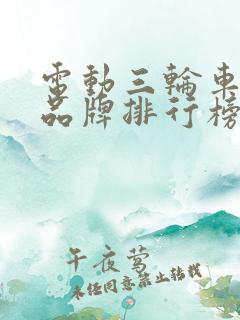 電動三輪車
品牌排行榜
午夜莺
未经同意禁止转载